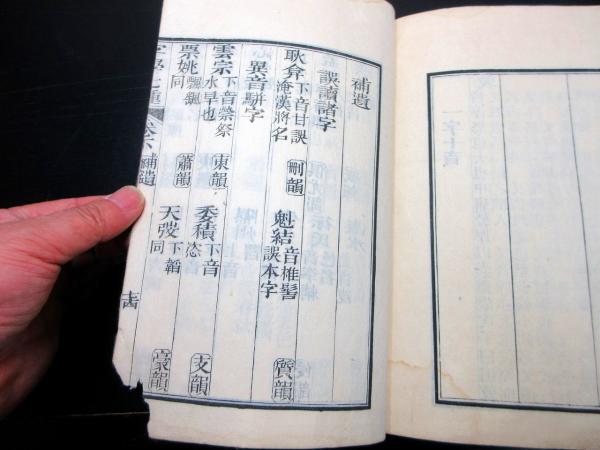 補遺
誤讀諸字
耿弇下音甘誤淹漢將名 刪韻 魁結音椎髻誤本字 質韻
異音駢字
雲宗下音禜祭水旱也 東韻 委積下音恣 支韻
票姚同 蕭韻 天弢下韜同 豪韻
字學七種 卷下 補遺 十四